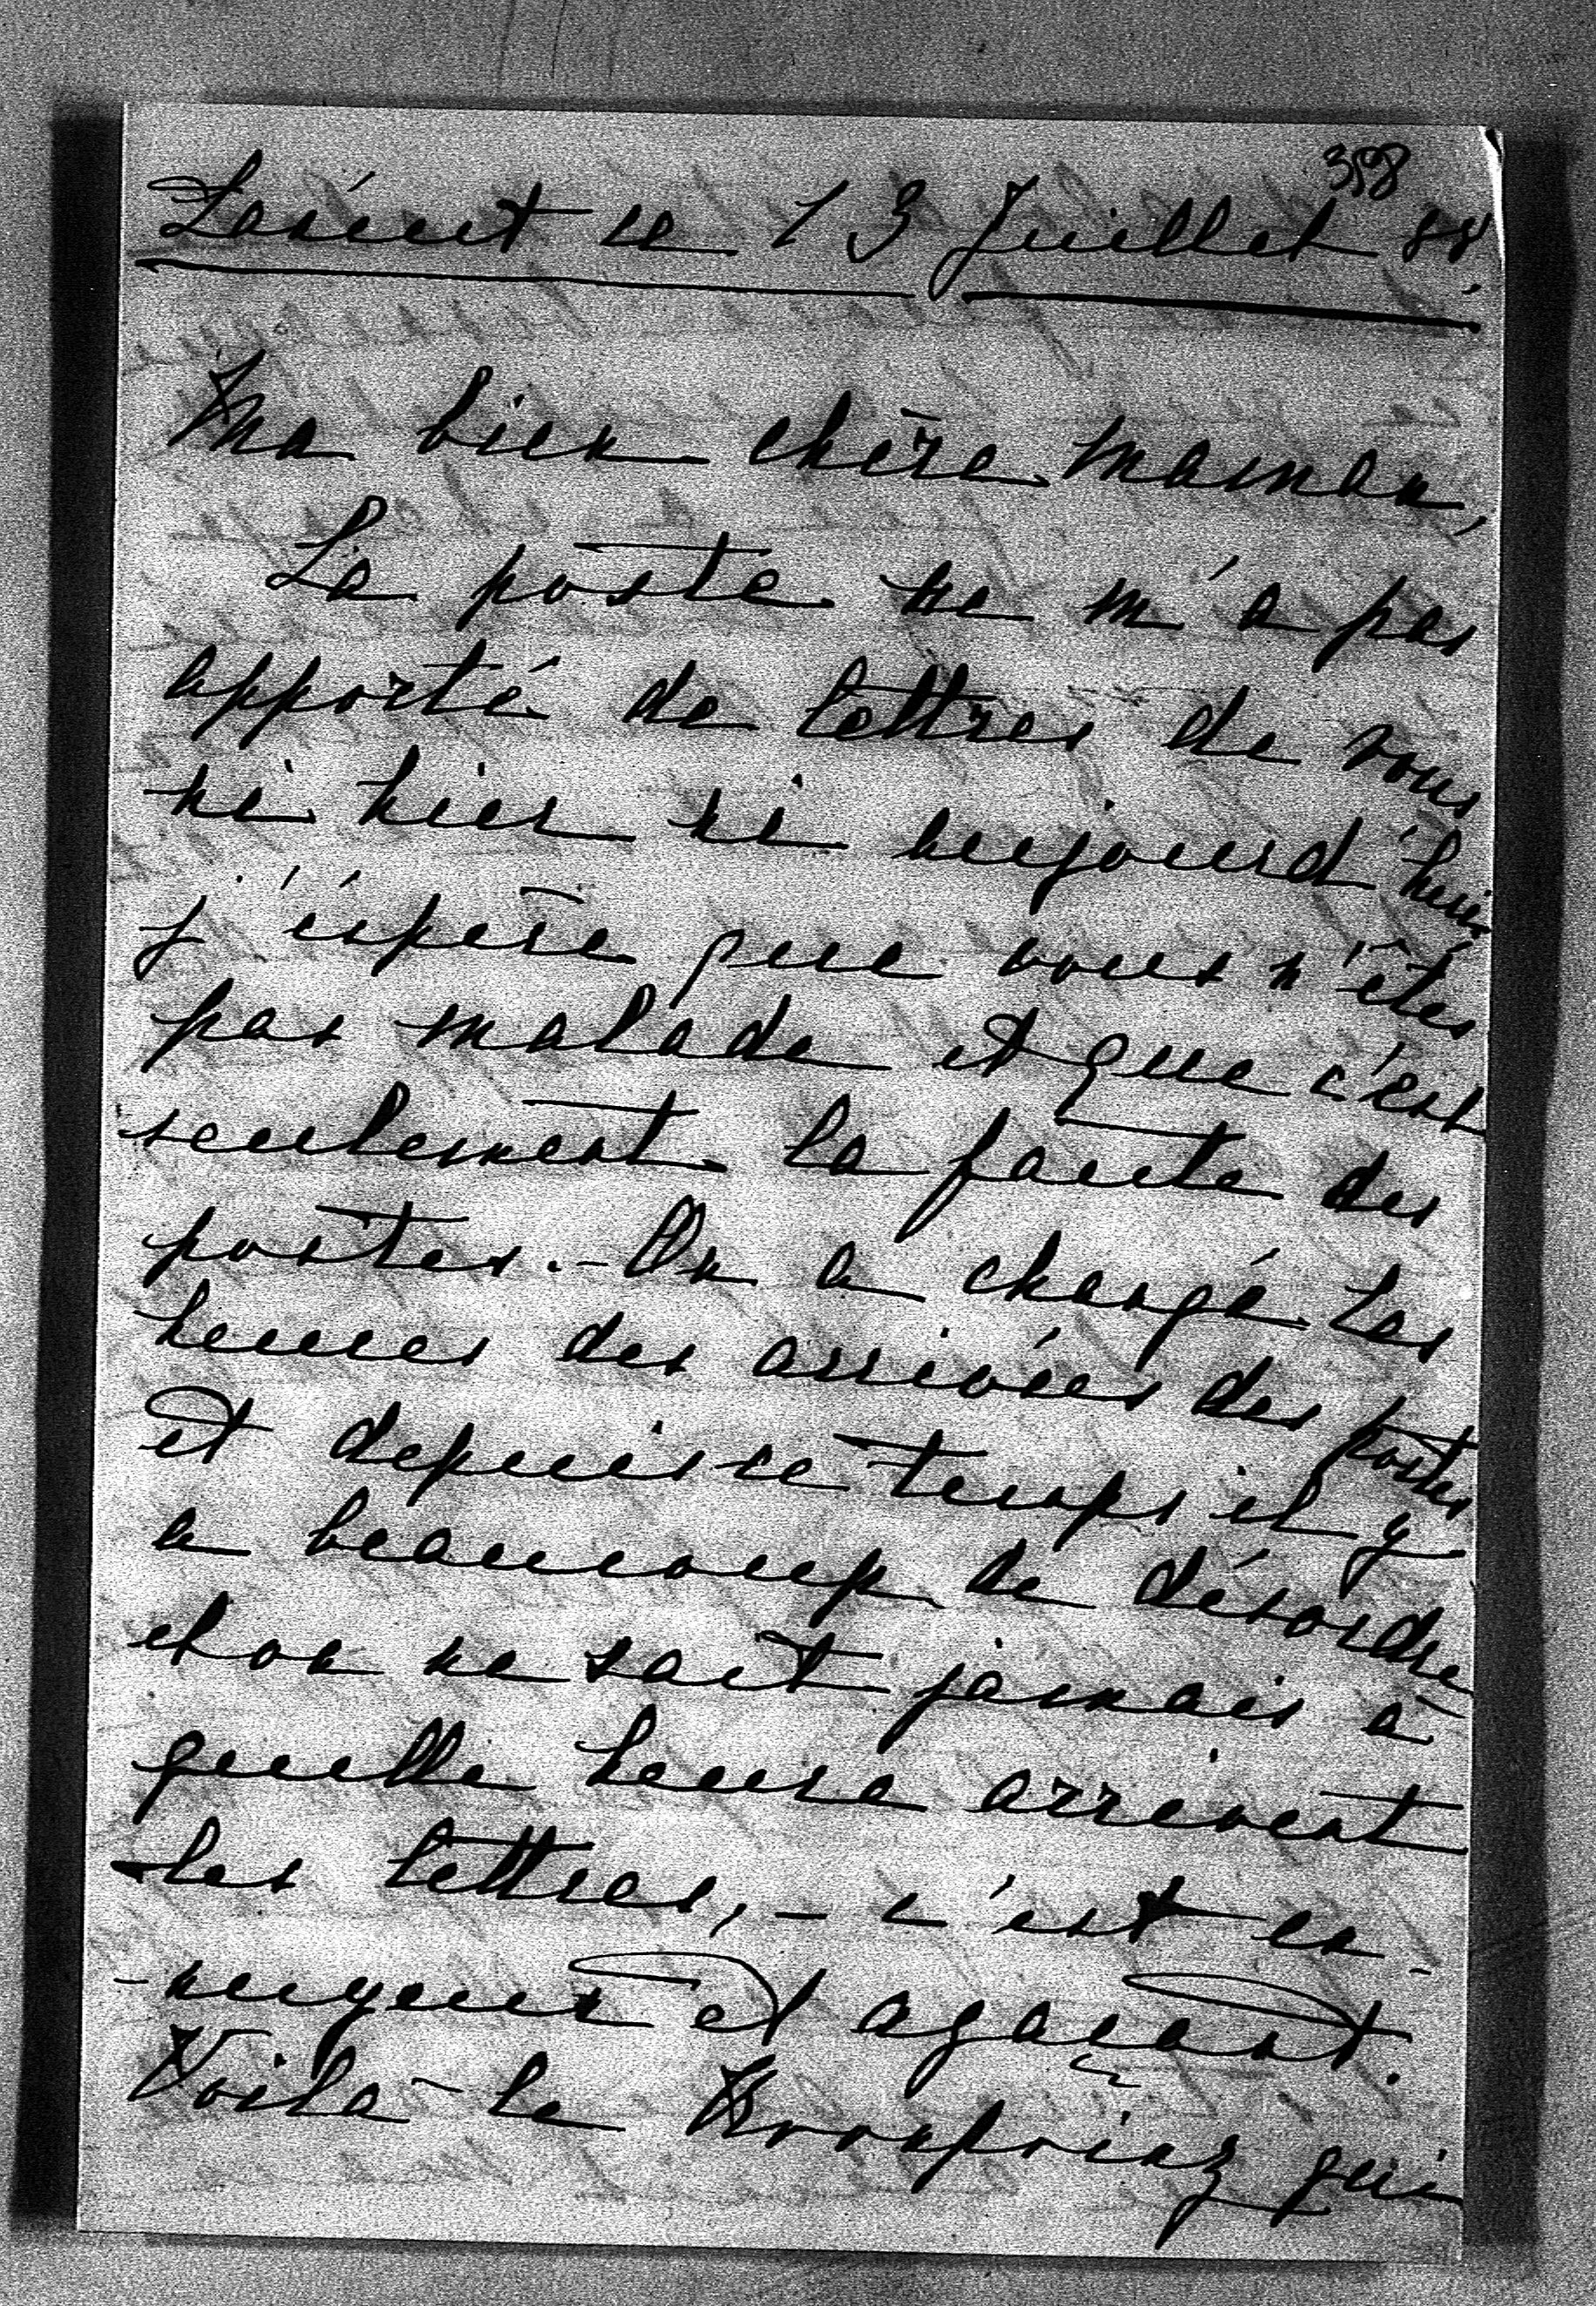 398
Lancut ce 13 Juillet 88.
Ma bien chère maman,
La poste ne m'a pas
apporté de lettres de vous
ni hier ni aujourd'hui
j'éspère que vous n'êtes
pas malade et que c'est
seulement la faute des
postes. - On a changé les
heures des arrivées des postes
et depuis ce temps il y
a beaucoup de désordre
et on ne sait jamais à
quelle heure arrivent
les lettres, - c'est en-
-nuyeux et agaçant.
Voilà le Kronprinz qui